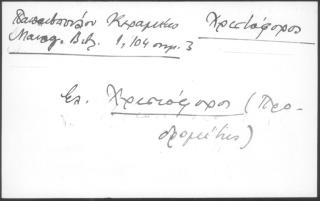 Παπαδοπούλου Κεραμέως Χριστόφορος
Μαυρογ. Βιβ. 1, 104 σημ. 3
Χριστόφορος (Προ-
δρομίτης)